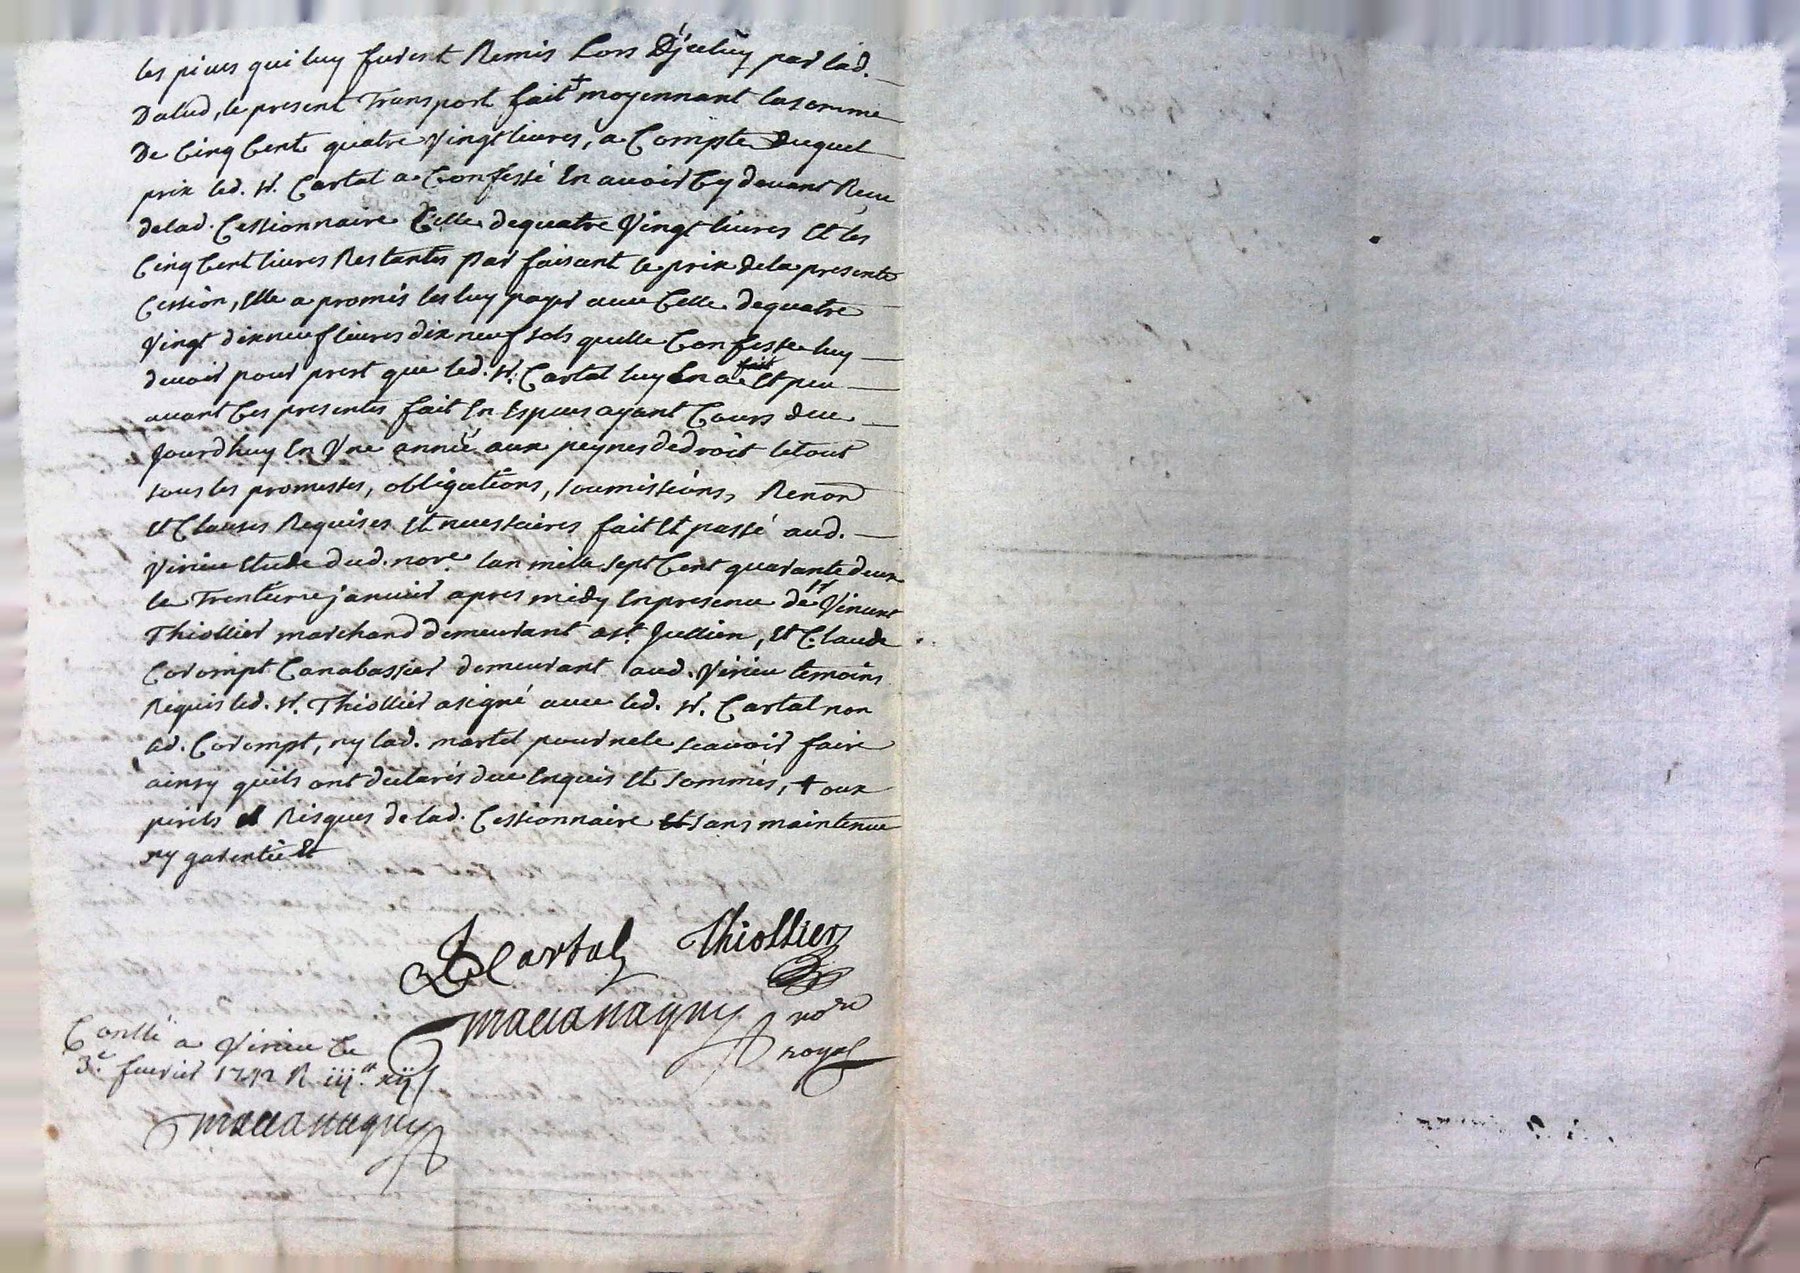 les pieces qui luy furent Remis Lors D'jceluy par lad.
Dalud, le present Transport fait + moyennant la somme
De Cinq Cent quatre Vingt livres, a Compte Duquel
prix led. sr. Cartal a Confessé En avoir Cy devant Reçu
de lad. Cessionnaire Celle de quatre Vingt livres Et les
Cinq Cent livres Restantes par faisant le prix de la presente
Cession, Elle a promis les luy payer avec Celle de quatre
Vingt dix neuf livres dix neuf sols quelle Confesse luy
devoir pour prest que led. sr. Cartal luy En a fait Et peu
avant Ces presentes fait En Especes ayant Cours dece
Jourdhuy En Une année aux peynes de droit le tout
sous les promesses, obligations, soumissions, Renon
Et Clauses Requises Et necessaires fait Et passé aud.
Virieu Etude dud. nore. lan mille sept Cent quarante deux
le Trentieme janvier apres midy En presence de sr Vincent
Thiollier marchand demeurant a st. Jullien, Et Claude
Corompt Canabassier demeurant aud. Virieu temoins
Requis led. sr. Thiollier a signé avec led. sr. Cartal non
led. Corompt, ny lad. martel pour ne le scavoir faire
ainsy quils ont declarés dece Enquis Et sommés, + aux
perils et Risques de lad. Cessionnaire Et sans maintenue
ny garentie Et
Cartal Thiollier
maccanaguy nore
royal
Conllé a Virieu le
3e. fevrier 1742 R iij ll xij s
maccanaguy